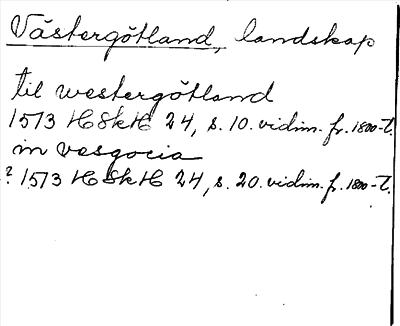 Västergötland, landskap
til westergötland
1573 HSkH 24, s. 10. vidim. fr. 1800-t.
in vesgocia
? 1573 HSkH 24, s. 20. vidim. fr. 1800-t.